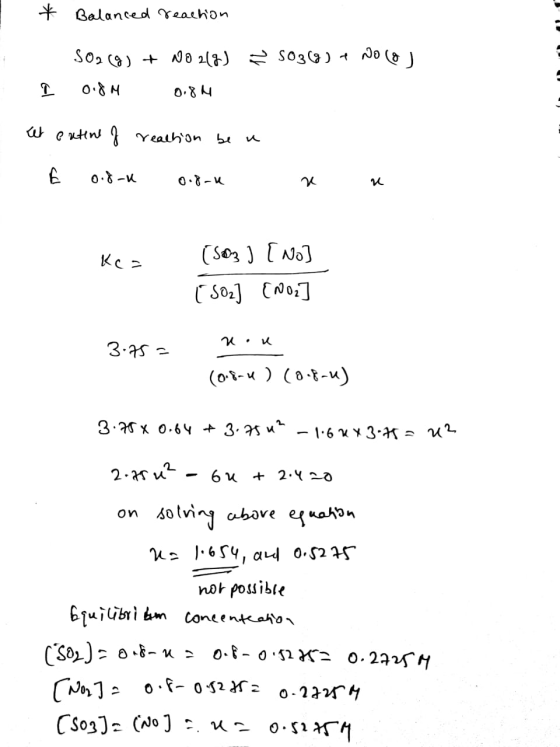 * Balanced reaction
SO2(g) + NO2(g) ⇌ SO3(g) + NO(g)
I 0.8M 0.8M
let extent of reaction be x
E 0.8-x 0.8-x x x
Kc = [SO3] [NO] / [SO2] [NO2]
3.75 = x . x / (0.8-x) (0.8-x)
3.75 x 0.64 + 3.75x² - 1.6x x 3.75 = x²
2.75x² - 6x + 2.4 = 0
on solving above equation
x = 1.654, and 0.5275
not possible
Equilibrium concentration
[SO2] = 0.8-x = 0.8-0.5275 = 0.2725M
[NO2] = 0.8-0.5275 = 0.2725M
[SO3] = [NO] = x = 0.5275M